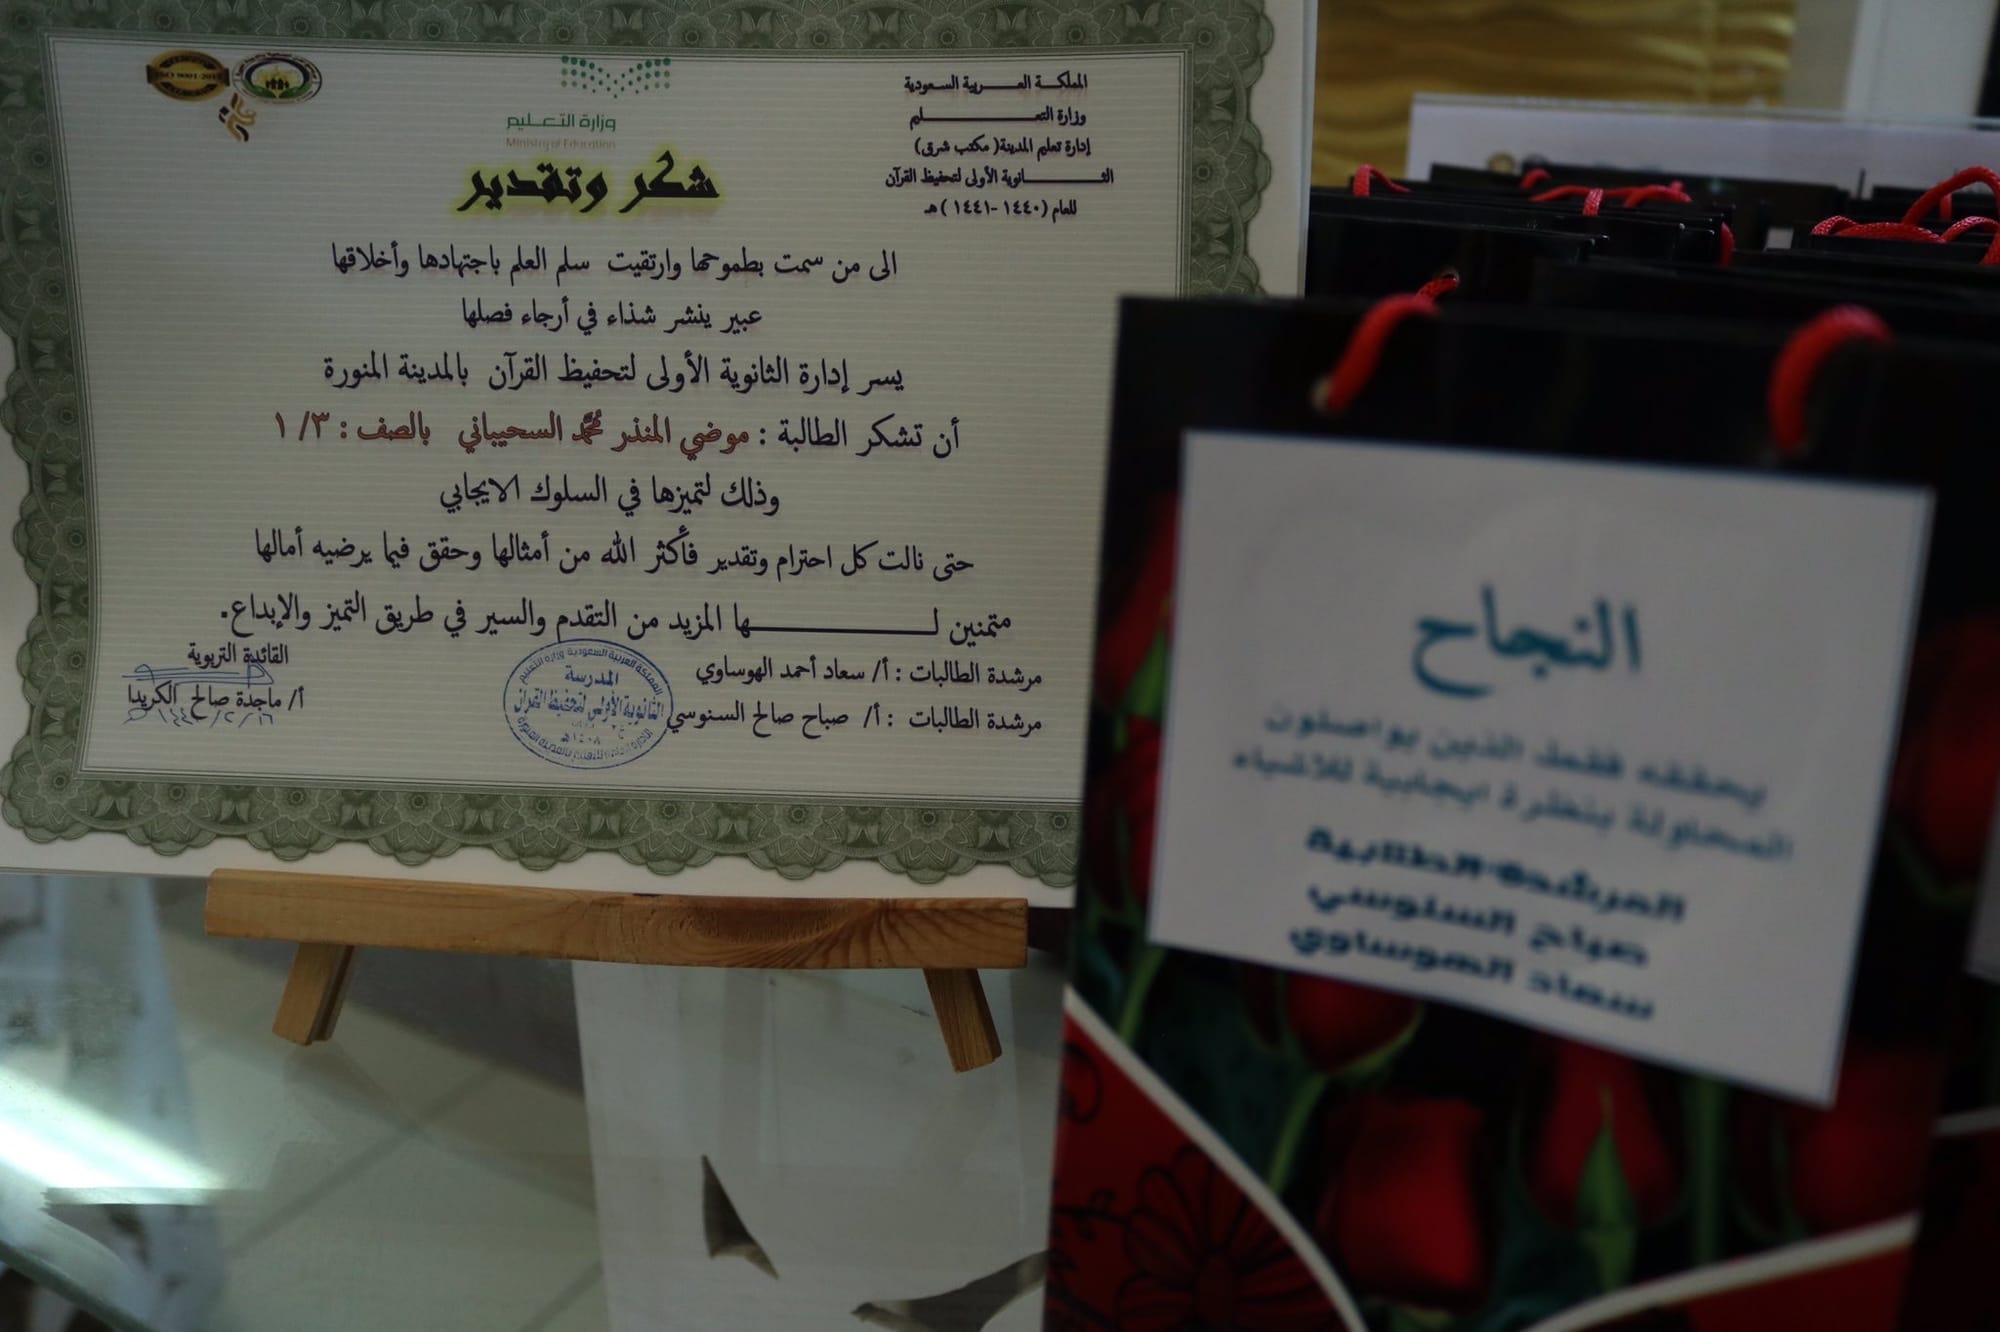 المملكة العربية السعودية
وزارة التعليم
إدارة تعليم المدينة( مكتب شرق)
الثانوية الأولى لتحفيظ القرآن
للعام (١٤٤٠ -١٤٤١ ) هـ
وزارة التعليم
Ministry of Education
شكر وتقدير
الى من سمت بطموحها وارتقيت سلم العلم باجتهادها وأخلاقها
عبير ينشر شذاء في أرجاء فصلها
يسر إدارة الثانوية الأولى لتحفيظ القرآن بالمدينة المنورة
أن تشكر الطالبة : موضي المنذر محمد السحيباني بالصف : ٣/ ١
وذلك لتميزها في السلوك الايجابي
حتى نالت كل احترام وتقدير فأكثر الله من أمثالها وحقق فيما يرضيه أمالها
متمنين لـــها المزيد من التقدم والسير في طريق التميز والإبداع.
مرشدة الطالبات : أ/ سعاد أحمد الهوساوي
مرشدة الطالبات : أ/ صباح صالح السنوسي
القائدة التربوية
أ/ ماجدة صالح الكريدا
المملكة العربية السعودية وزارة التعليم
المدرسة
الثانوية الأولى لتحفيظ القرآن
١٤٠٨هـ
النجاح
يحققه فقط الذين يواصلون
المحاولة بنظرة ايجابية للأشياء
المرشدة الطلابية
صباح السنوسي
سعاد الهوساوي